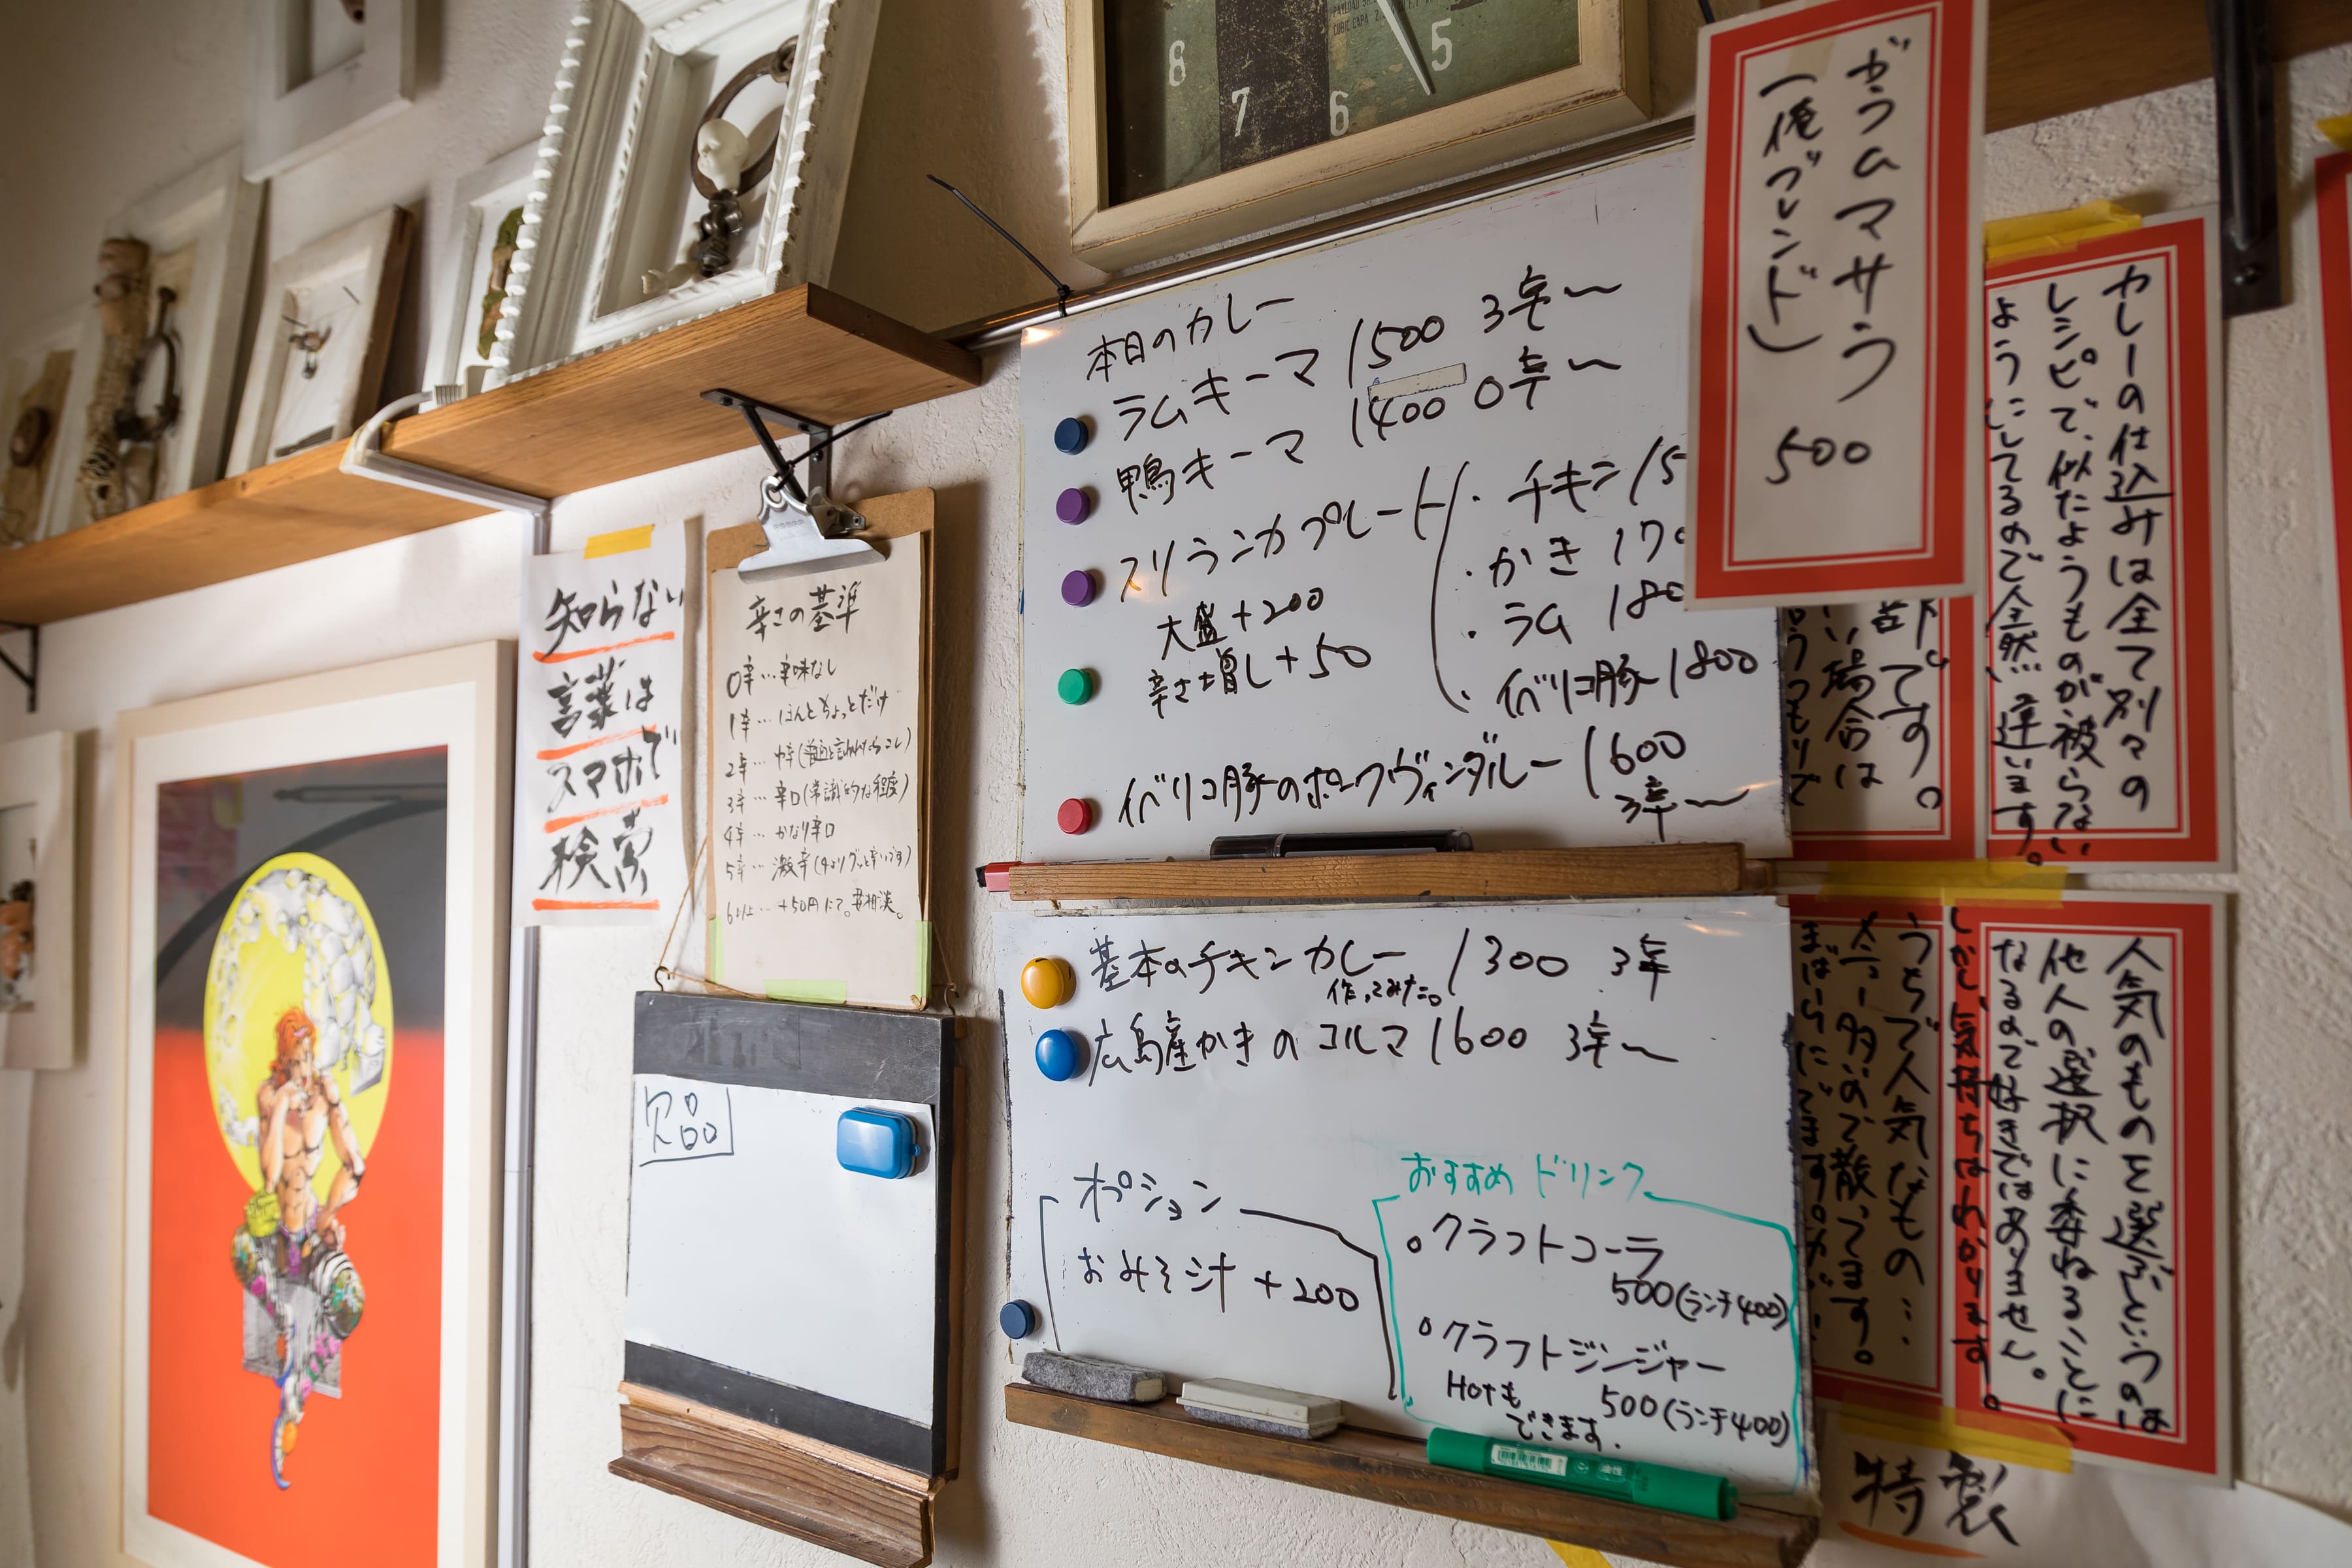 8
7
6
5
知らない
言葉は
スマホで
検索
辛さの基準
0辛…辛味なし
1辛…ほんとちょっとだけ
2辛…中辛(普通と言われたらコレ)
3辛…辛口(常識的な程度)
4辛…かなり辛口
5辛…激辛(4よりグッと辛いです)
6以上…+50円にて。要相談。
欠品
本日のカレー
ラムキーマ 1500 3辛〜
鴨キーマ 1400 0辛〜
スリランカプレート
・チキン 15
・かき 170
・ラム 180
・イベリコ豚 1800
大盛+200
辛さ増し+50
イベリコ豚のポークヴィンダルー 1600
3辛〜
基本のチキンカレー 1300 3辛
作ってみた。
広島産かきのコルマ 1600 3辛〜
オプション
おみそ汁 +200
おすすめドリンク
○クラフトコーラ
500(ランチ400)
○クラフトジンジャー
Hotも
できます.
500(ランチ400)
ガラムマサラ
(俺ブレンド)
500
カレーの仕込みは全て別々の
レシピで、似たようなものが被らない
ようにしてるので全然違います。
です。
い場合は
うつもりで
人気のものを選ぶというのは
他人の選択に委ねることに
なるので好きではありません。
しかし、気持ちはわかります。
うちで人気なもの…
メニュー多いので散ってます。
まばらにでます。
特製